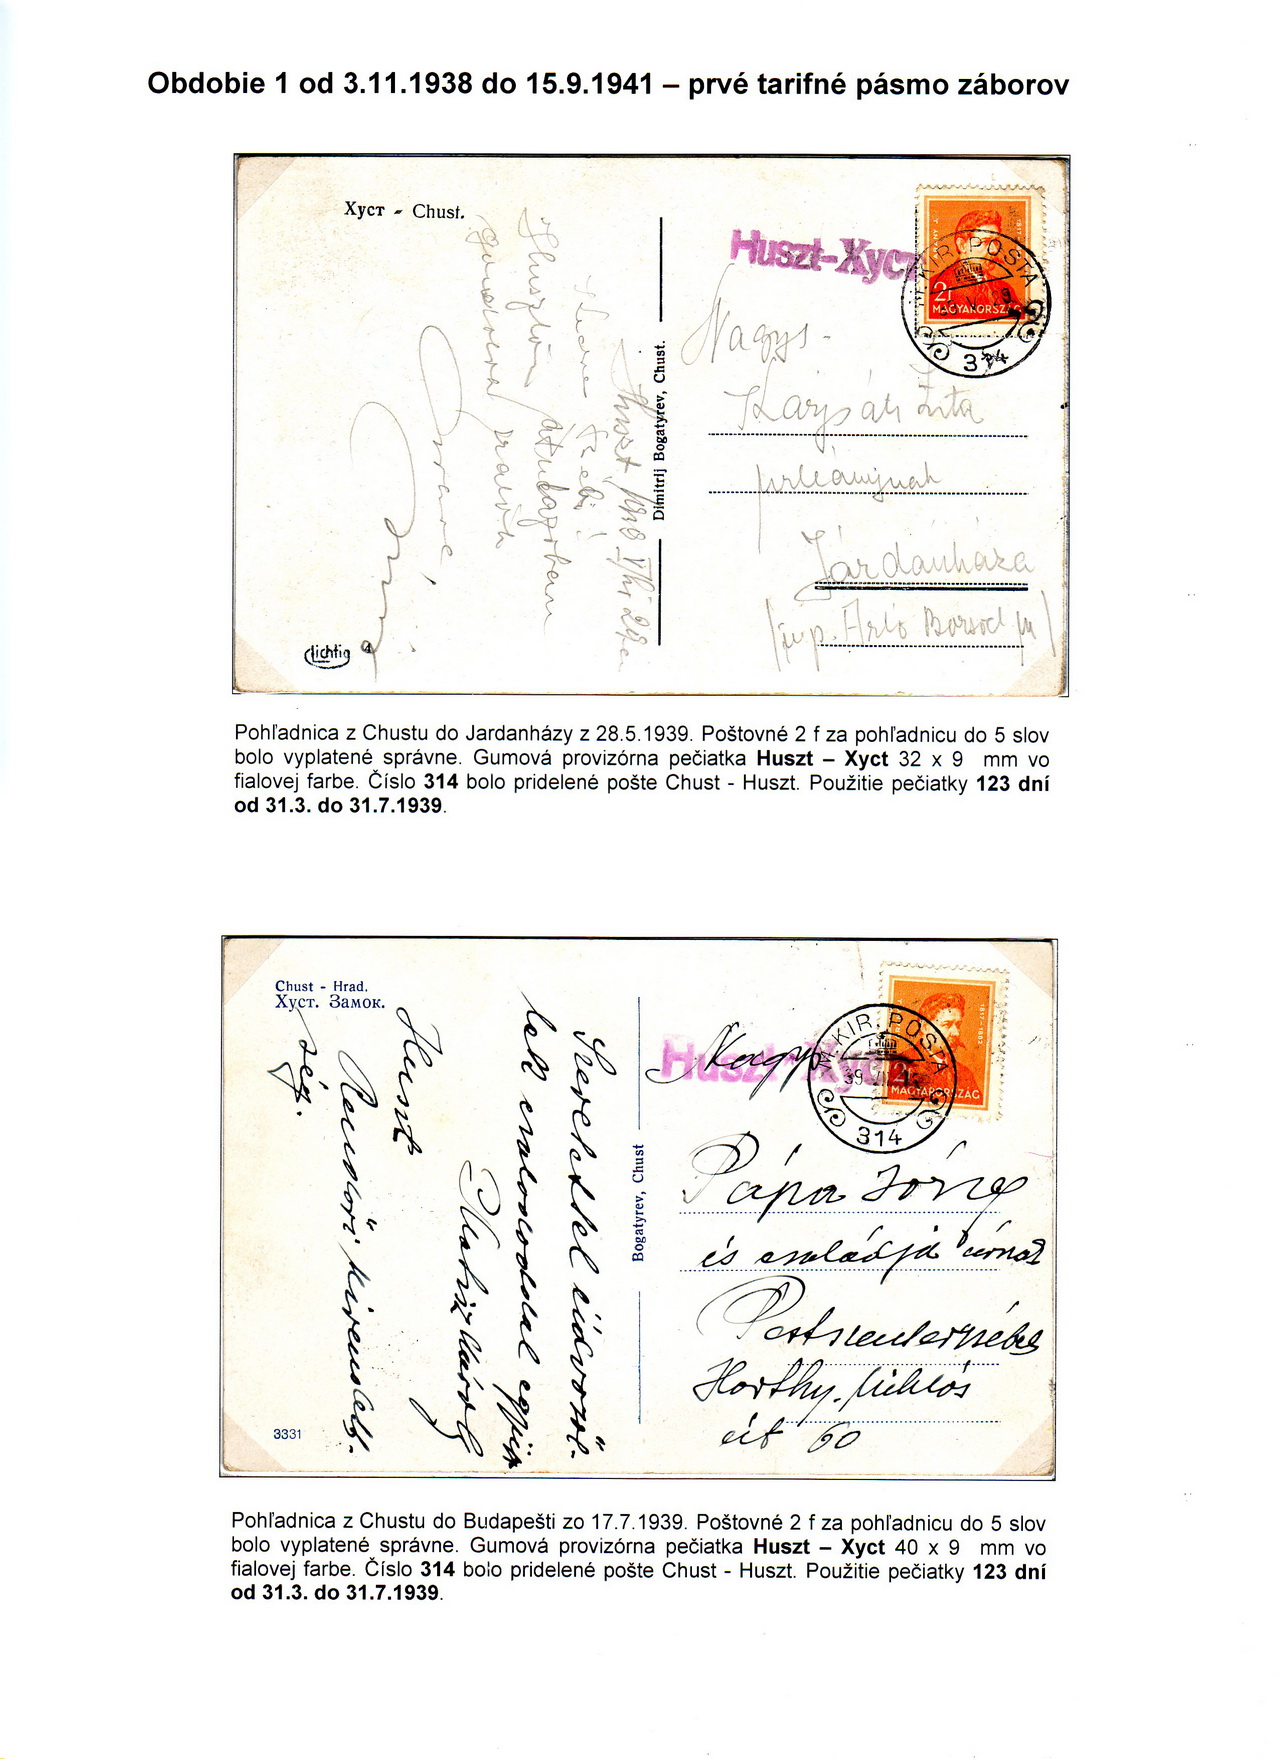 Obdobie 1 od 3.11.1938 do 15.9.1941 – prvé tarifné pásmo záborov
Хуст - Chust.
Huszt-Хуст
M. KIR. POSTA
2f
MAGYARORSZÁG
314
Nagys.
Zita
Járdánháza
Arló Borsod
Huszt
Dimitrij Bogatyrev, Chust.
lichtig
4
Pohľadnica z Chustu do Jardanházy z 28.5.1939. Poštovné 2 f za pohľadnicu do 5 slov
bolo vyplatené správne. Gumová provizórna pečiatka Huszt – Xyct 32 x 9 mm vo
fialovej farbe. Číslo 314 bolo pridelené pošte Chust - Huszt. Použitie pečiatky 123 dní
od 31.3. do 31.7.1939.
Chust - Hrad.
Хуст. Замок.
Huszt-
M. KIR. POSTA
MAGYARORSZÁG
314
Nagys
Pápa
és családja
Horthy Miklós
út 60
Szeretettel üdvözöl-
lek családoddal együtt
Huszt
Rendőri kirendelt-
ség.
Bogatyrev, Chust
3331
Pohľadnica z Chustu do Budapešti zo 17.7.1939. Poštovné 2 f za pohľadnicu do 5 slov
bolo vyplatené správne. Gumová provizórna pečiatka Huszt – Xyct 40 x 9 mm vo
fialovej farbe. Číslo 314 bolo pridelené pošte Chust - Huszt. Použitie pečiatky 123 dní
od 31.3. do 31.7.1939.